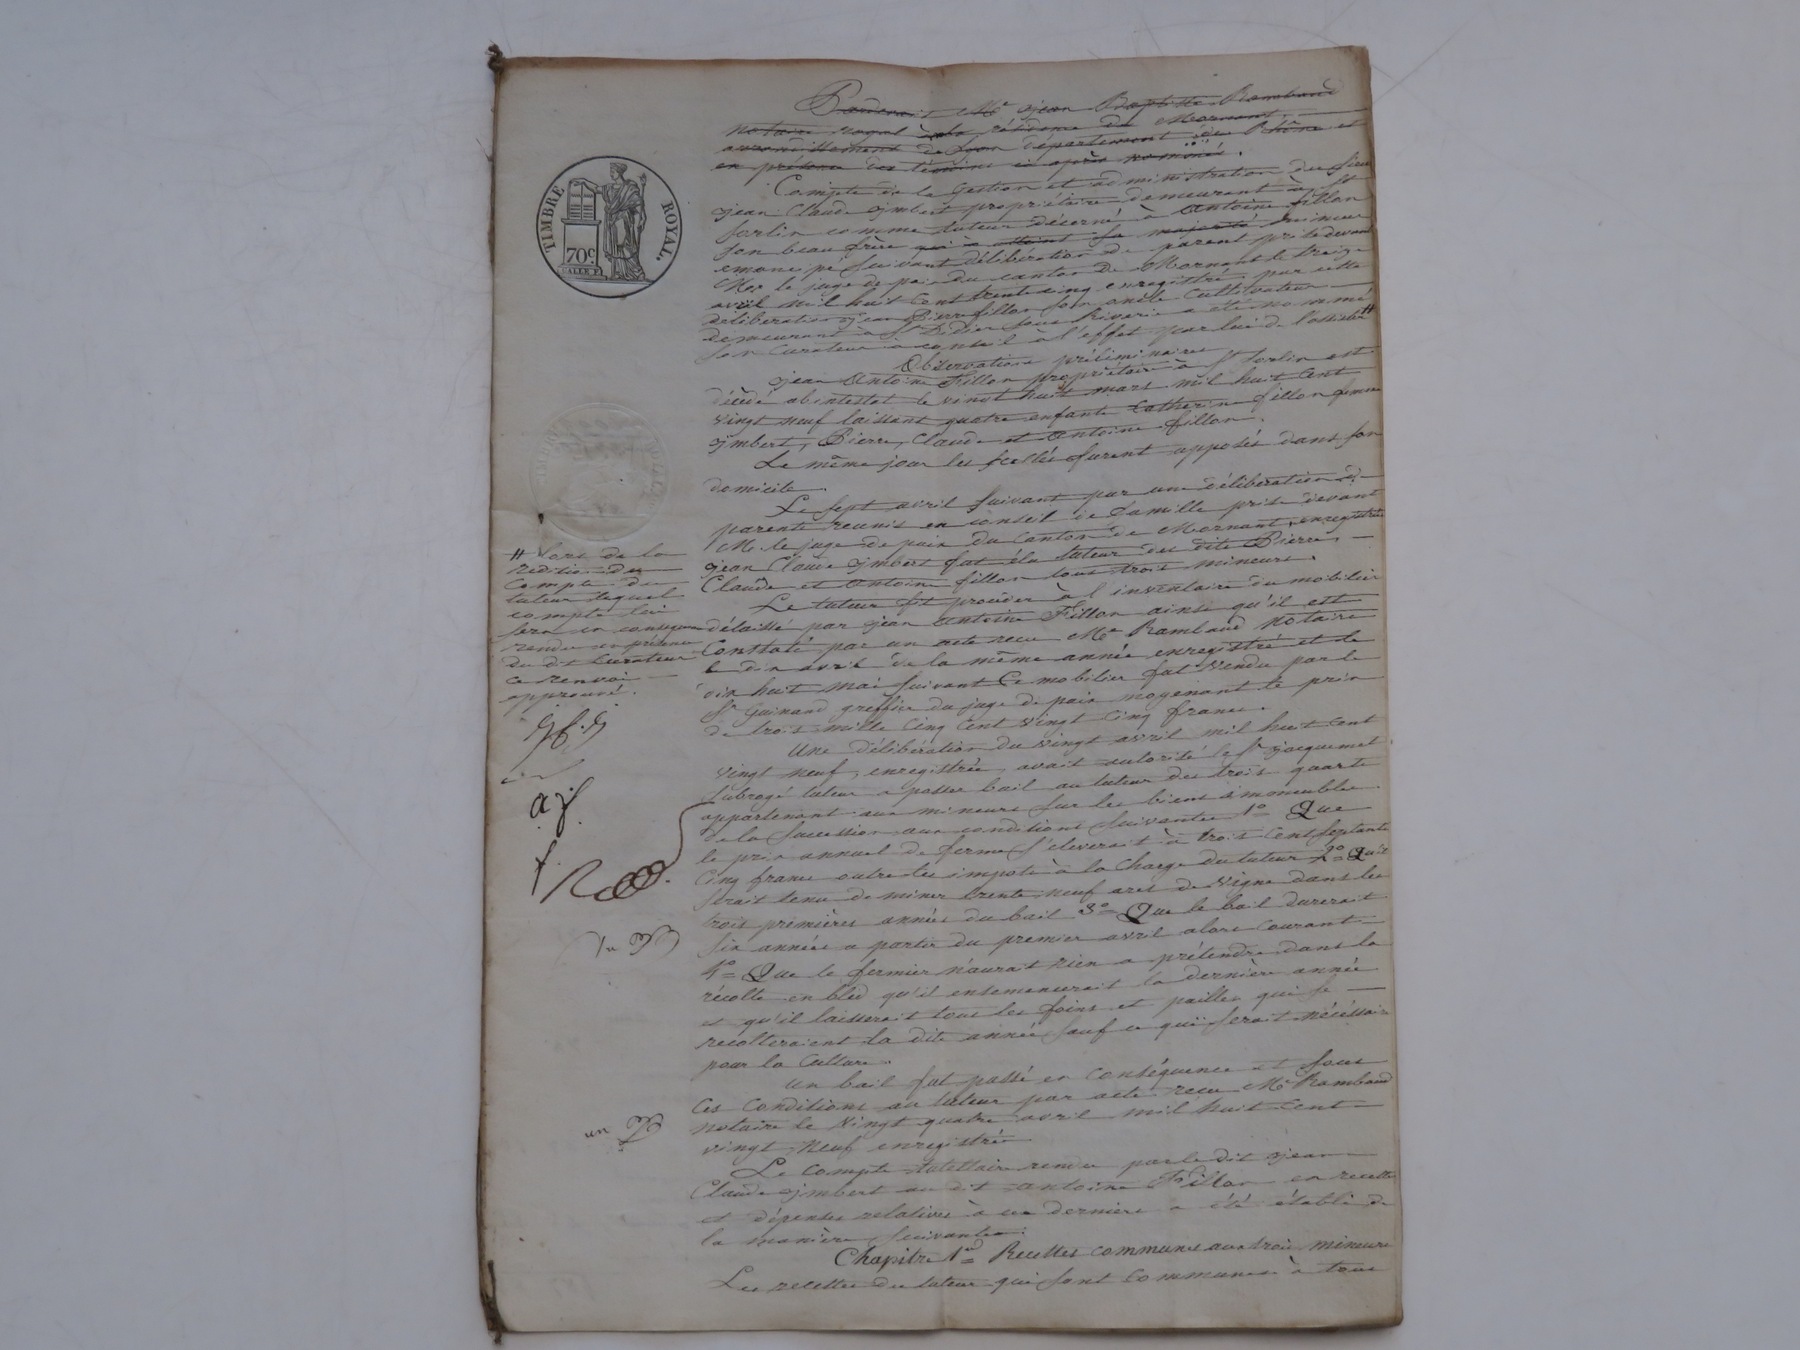 Pardevant Me jean Baptiste Rambaud
notaire royal à la résidence de Mornant
arrondissement de Lyon département du Rhône et
en présence des témoins ci après nommés.
TIMBRE ROYAL.
70c.
Compte de la gestion et administration du Sieur
jean Claude ymbert propriétaire demeurant à St
Sorlin comme tuteur décerné à Antoine fillon
son beau frère qui a atteint sa majorité mineur
émancipé suivant délibération de parent prise devant
Mr le juge de paix du canton de Mornant le treize
avril mil huit cent trente cinq enregistrée par cette
délibération jean Pierre fillon son oncle Cultivateur
demeurant à St Didier sous Riverie a été nommé
son Curateur à conseil à l'effet par lui de l'assister #
Observations préliminaires
jean Antoine Fillon propriétaire à St Sorlin est
décédé abintestat le vingt huit mars mil huit Cent
vingt neuf laissant quatre enfants Catherine fillon femme
ymbert, Pierre, Claude et Antoine fillon.
Le même jour les scellés furent apposés dans son
domicile.
Le sept avril suivant par une délibération de
parents reunis en conseil de famille prise devant
M. le juge de paix du Canton de Mornant, enregistrée
jean Claude ymbert fut élu tuteur des dits Pierre
Claude et Antoine fillon tous trois mineurs.
Le tuteur fit procéder à l'inventaire du mobilier
délaissé par jean Antoine Fillon ainsi qu'il est
Constaté par un acte reçu Me Rambaud Notaire
le dix avril de la même année enregistré et le
dix huit mai suivant Ce mobilier fut Vendu par le
Sr Guinand greffier du juge de paix moyenant le prix
de trois mille Cinq Cent vingt Cinq francs.
Une délibération du vingt avril mil huit cent
vingt neuf, enregistrée, avait autorisé le Sr jacquemet
Subrogé tuteur a passer bail au tuteur des trois quarts
appartenant aux mineurs sur les biens immeubles
de la Succession aux conditions Suivantes 1o Que
le prix annuel de ferme s'éleverait à trois Cent Septante
Cinq francs outre les impots à la Charge du tuteur 2o Qu'il
serait tenu de miner trente neuf ares de Vigne dans les
trois premières années du bail 3o Que le bail durerait
Six années a partir du premier avril alors Courant
4o Que le fermier n'aurait rien a prétendre dans la
récolte en bled qu'il ensemencerait la dernière année
et qu'il laisserait tous les foins et pailles qui se
recolteraient la dite année Sauf ce qui serait nécéssaire
pour la Culture.
Un bail fut passé en Conséquence et sous
Ces Conditions au tuteur par acte reçu Me Rambaud
notaire le Vingt quatre avril mil huit Cent
vingt Neuf enregistré
Le Compte tutellaire rendu par le dit jean
Claude ymbert au dit Antoine Fillon en recettes
et dépenses relatives à ce dernier a été établi de
la manière suivante.
Chapitre 1er Recettes communes aux trois mineurs
Les recettes du tuteur qui sont communes à tous
# lors de la
reddition du
Compte du
tuteur lequel
compte lui
sera en conséquence
rendu en présence
du dit Curateur
ce renvoi
approuvé.
a f.